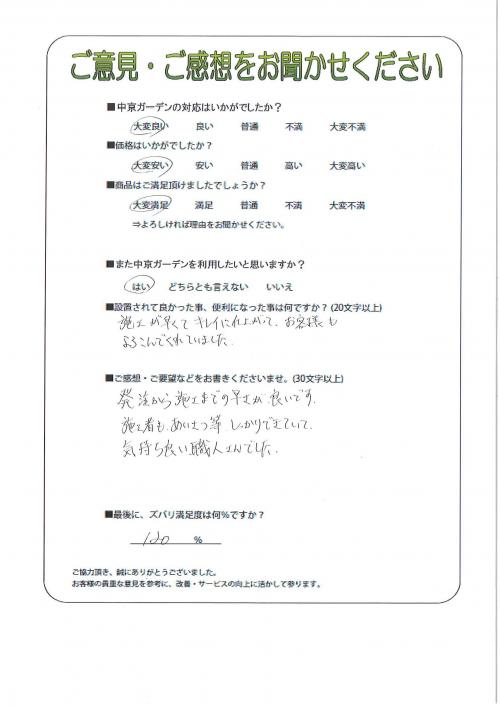 ご意見・ご感想をお聞かせください
■中京ガーデンの対応はいかがでしたか？
大変良い 良い 普通 不満 大変不満
■価格はいかがでしたか？
大変安い 安い 普通 高い 大変高い
■商品はご満足頂けましたでしょうか？
大変満足 満足 普通 不満 大変不満
⇒よろしければ理由をお聞かせください。
■また中京ガーデンを利用したいと思いますか？
はい どちらとも言えない いいえ
■設置されて良かった事、便利になった事は何ですか？(20文字以上)
施工が早くてキレイに仕上がって、お客様も
よろこんでくれていました.
■ご感想・ご要望などをお書きくださいませ。(30文字以上)
発注から施工までの早さが良いです.
施工者も、あいさつ等しっかりできていて、
気持ち良い職人さんでした.
■最後に、ズバリ満足度は何%ですか？
120 %
ご協力頂き、誠にありがとうございました。
お客様の貴重な意見を参考に、改善・サービスの向上に活かして参ります。